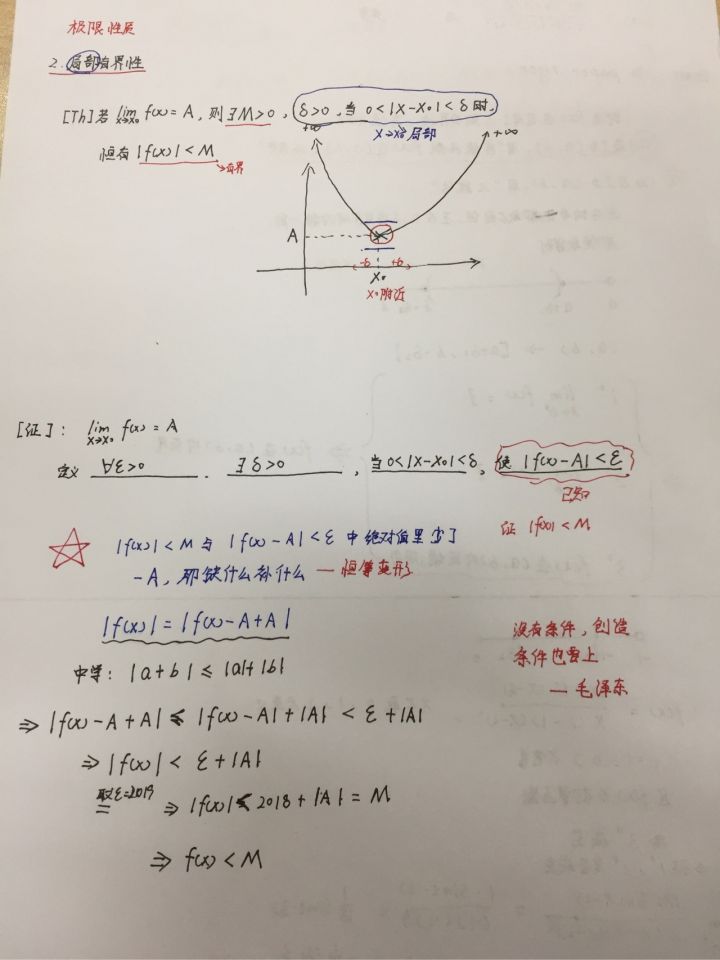 极限性质
2. 局部有界性
[Th]若 lim x→x₀ f(x) = A, 则 ∃M>0, δ>0, 当 0<|x-x₀|<δ时,
x→x₀局部
恒有 |f(x)| < M
→有界
+∞ +∞
A
-δ +δ
x₀
x₀附近
[证]: lim x→x₀ f(x) = A
定义 ∀ε>0 . ∃δ>0 , 当0<|x-x₀|<δ, 使 |f(x)-A|<ε
已知
证 |f(x)|<M
|f(x)|<M 与 |f(x)-A|<ε 中绝对值里少了
-A, 那缺什么补什么 — 恒等变形
|f(x)| = |f(x)-A+A|
没有条件, 创造
条件也要上
— 毛泽东
中学: |a+b| ≤ |a|+|b|
⇒ |f(x)-A+A| ≤ |f(x)-A|+|A| < ε+|A|
⇒ |f(x)| < ε+|A|
取ε=2019 ⇒ |f(x)| ≤ 2018+|A| = M
⇒ f(x) < M